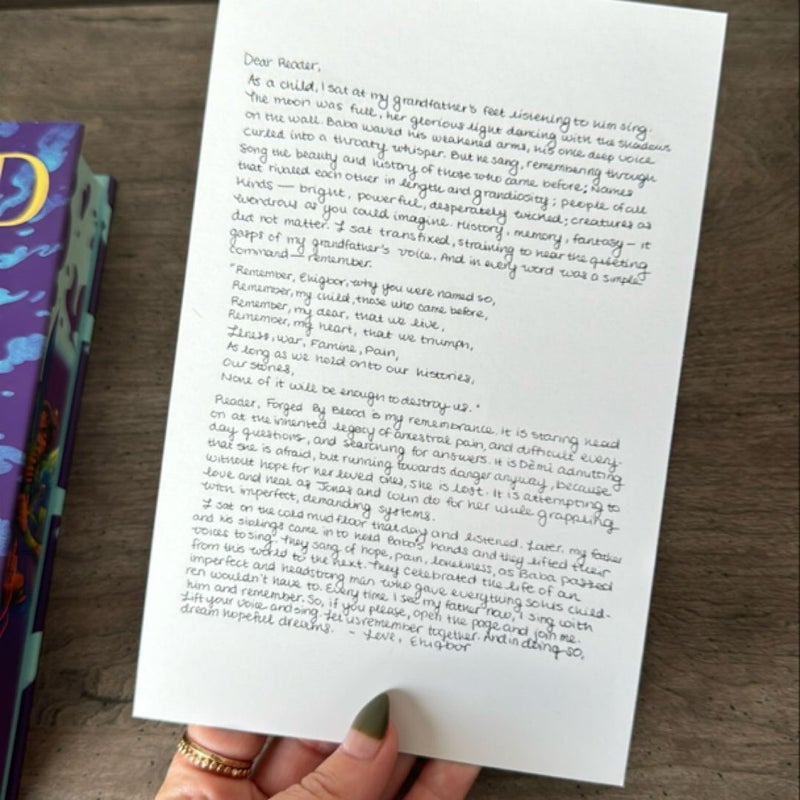 D
Dear Reader,
As a child, I sat at my grandfather's feet listening to him sing.
The moon was full, her glorious light dancing with the shadows
on the wall. Baba waved his weakened arms, his once deep voice
curled into a throaty whisper. But he sang, remembering through
song the beauty and history of those who came before; Names
that rivaled each other in length and grandiosity; people of all
kinds — bright, powerful, desperately wicked; creatures as
wondrous as you could imagine. History, memory, fantasy — it
did not matter. I sat transfixed, straining to hear the quieting
gasps of my grandfather's voice. And in every word was a simple
command — remember.
"Remember, Ehigbor, why you were named so,
Remember, my child, those who came before,
Remember, my dear, that we live,
Remember, my heart, that we triumph,
Illness, war, Famine, Pain,
As long as we hold onto our histories,
Our stories,
None of it will be enough to destroy us."
Reader, Forged By Blood is my remembrance. It is staring head
on at the inherited legacy of ancestral pain, and difficult every-
day questions, and searching for answers. It is Dèmi admitting
that she is afraid, but running towards danger anyway, because
without hope for her loved ones, she is lost. It is attempting to
love and heal as Jonas and Colin do for her while grappling
with imperfect, demanding systems.
I sat on the cold mud floor that day and listened. Later, my father
and his siblings came in to hold Baba's hands and they lifted their
voices to sing. They sang of hope, pain, loneliness, as Baba passed
from this world to the next. They celebrated the life of an
imperfect and headstrong man who gave everything so his child-
ren wouldn't have to. Every time I see my father now, I sing with
him and remember. So, if you please, open the page and join me.
Lift your voice and sing. Let us remember together. And in doing so,
dream hopeful dreams. - Love, Ehigbor